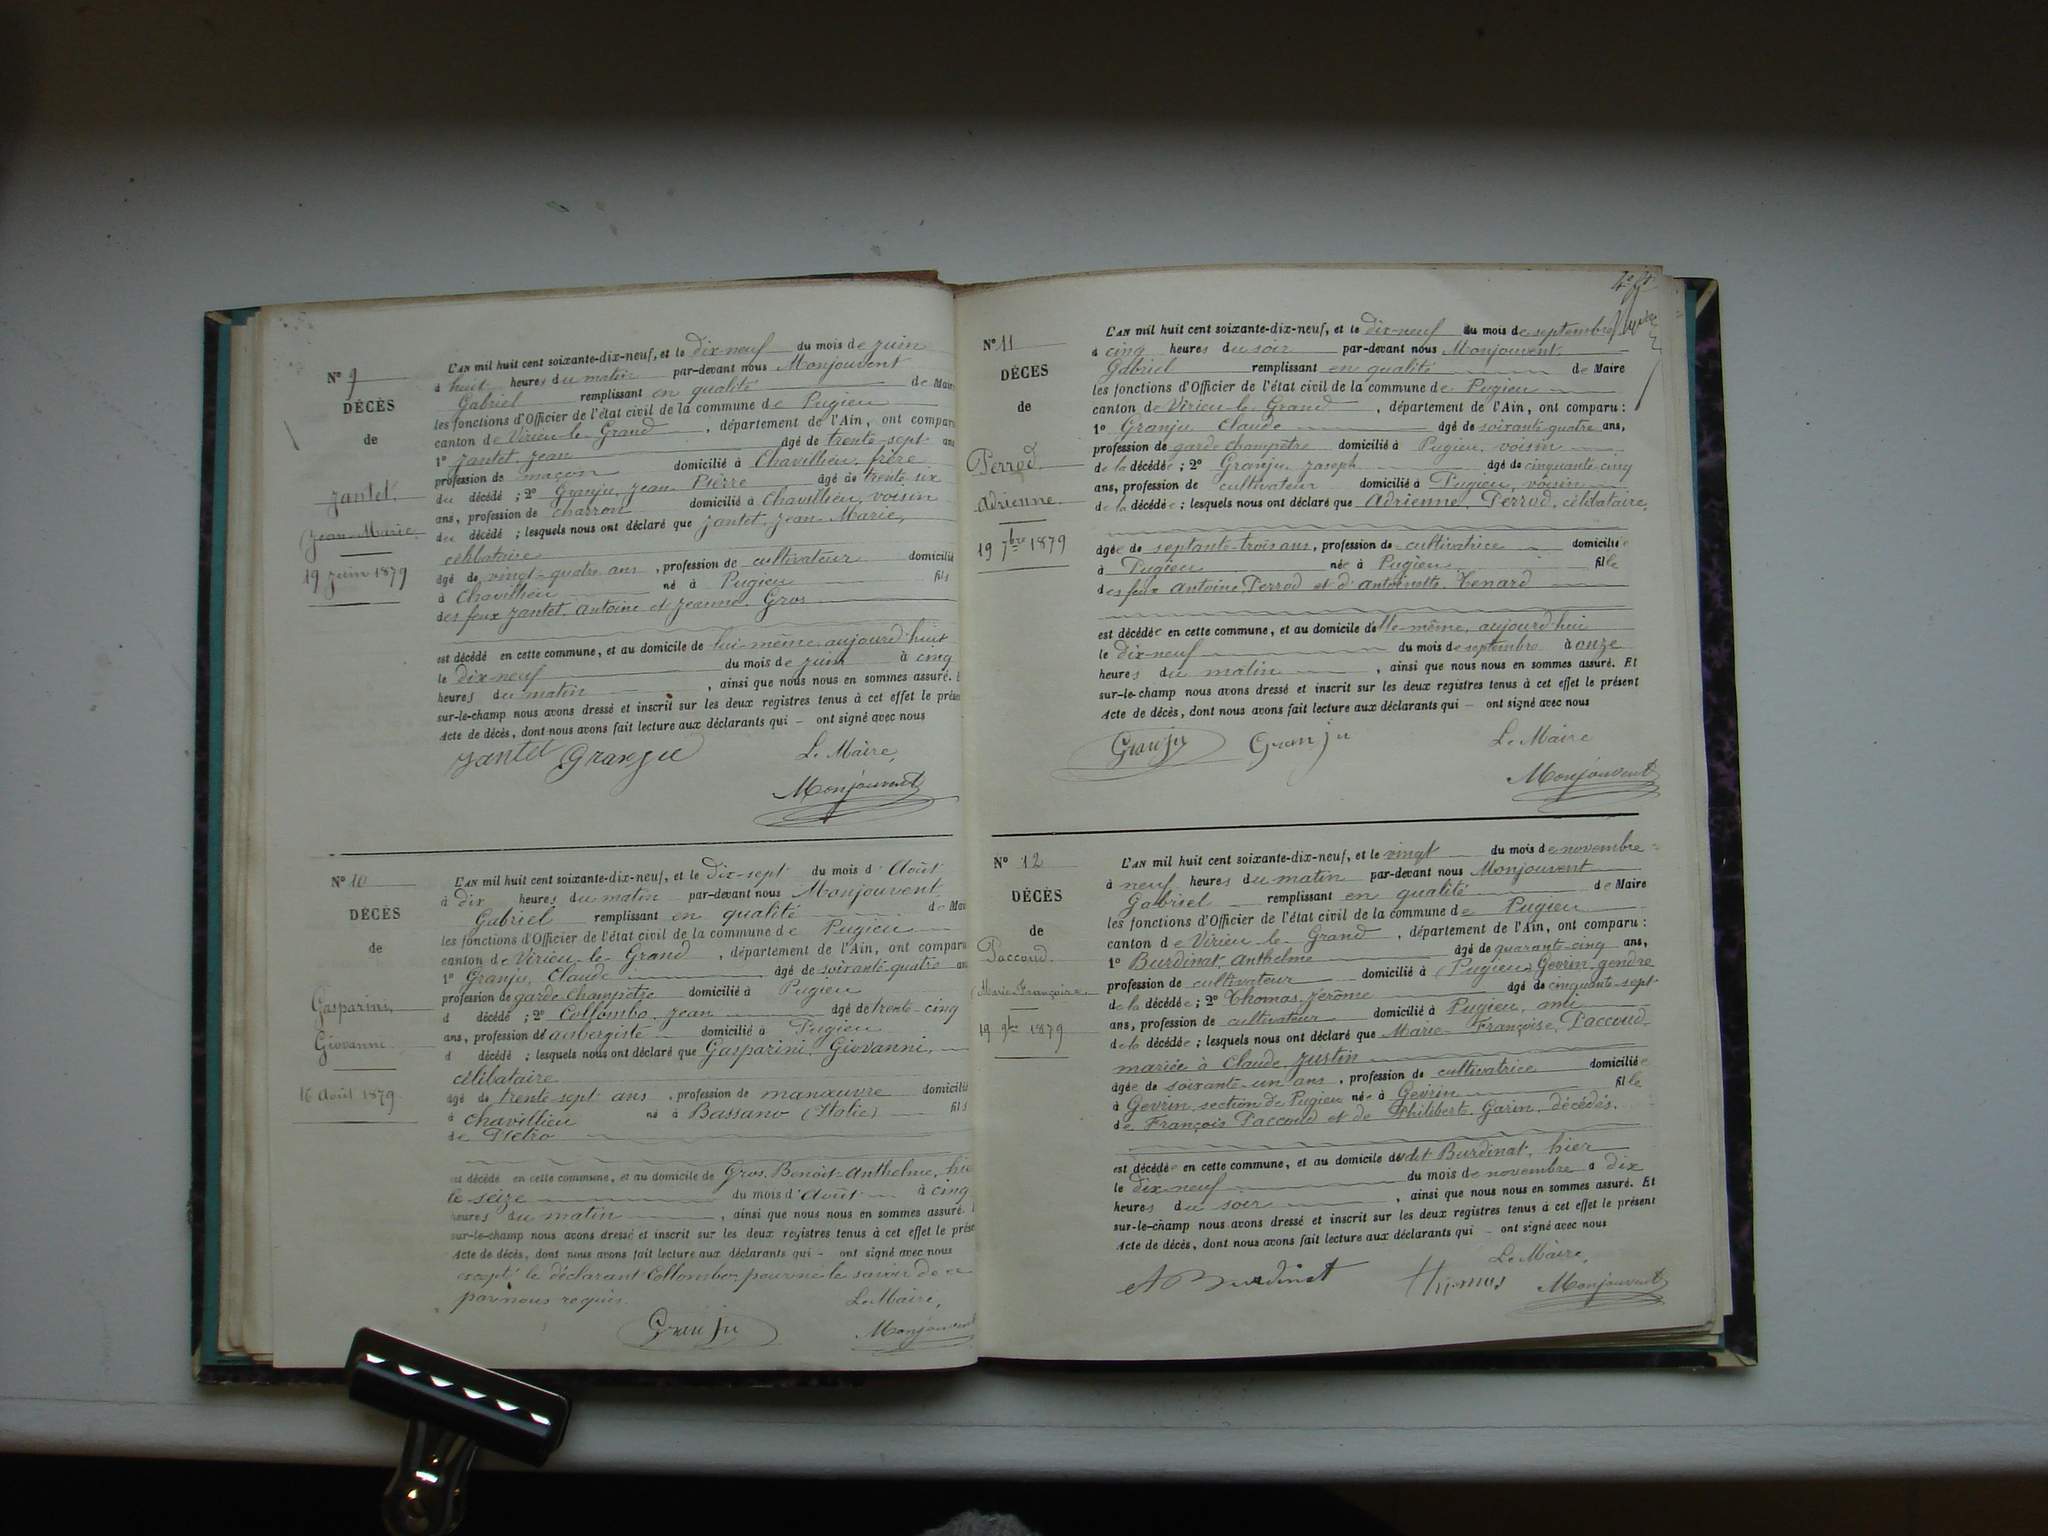 N° 9
DÉCÈS
de
Jantet,
Jean-Marie
19 Juin 1879
L'AN mil huit cent soixante-dix-neuf, et le dix-neuf du mois de Juin
à huit heures du matin par-devant nous Monjouvent
Gabriel remplissant en qualité de Mair
les fonctions d'Officier de l'état civil de la commune de Pugieu
canton de Virieu-le-Grand, département de l'Ain, ont compar
1° Jantet, Jean âgé de trente-sept ans
profession de maçon domicilié à Chavillieu, frère
du décédé ; 2° Granju, Jean Pierre âgé de trente six
ans, profession de charron domicilié à Chavillieu, voisin
du décédé ; lesquels nous ont déclaré que Jantet, Jean-Marie,
célibataire
âgé de vingt-quatre ans, profession de cultivateur domicilié
à Chavillieu né à Pugieu fils
des feux Jantet, Antoine et Jeanne Gros
est décédé en cette commune, et au domicile de lui-même, aujourd'hui
le dix-neuf du mois de Juin à cinq
heures du matin, ainsi que nous nous en sommes assuré. E
sur-le-champ nous avons dressé et inscrit sur les deux registres tenus à cet effet le prése
Acte de décès, dont nous avons fait lecture aux déclarants qui – ont signé avec nous
Jantet Granju Le Maire,
Monjouvent
N° 10
DÉCÈS
de
Gasparini,
Giovanni
16 Août 1879
L'AN mil huit cent soixante-dix-neuf, et le dix-sept du mois d'Août
à dix heures du matin par-devant nous Monjouvent
Gabriel remplissant en qualité de Mai
les fonctions d'Officier de l'état civil de la commune de Pugieu
canton de Virieu-le-Grand, département de l'Ain, ont comparu
1° Granju, Claude âgé de soixante-quatre ans
profession de garde champêtre domicilié à Pugieu
d décédé ; 2° Collombo, Jean âgé de trente-cinq
ans, profession de aubergiste domicilié à Pugieu
d décédé ; lesquels nous ont déclaré que Gasparini, Giovanni,
célibataire
âgé de trente-sept ans, profession de manœuvre domicilié
à Chavillieu né à Bassano (Italie) fils
de Piétro
est décédé en cette commune, et au domicile de Gros, Benoit-Anthelme, hie
le seize du mois d'Août à cinq
heures du matin, ainsi que nous nous en sommes assuré.
sur-le-champ nous avons dressé et inscrit sur les deux registres tenus à cet effet le prése
Acte de décès, dont nous avons fait lecture aux déclarants qui – ont signé avec nous
excepté le déclarant Collombo, pour ne le savoir de ce
par nous requis. Le Maire,
Granju Monjouvent
N° 11
DÉCÈS
de
Perrod
Adrienne
19 7bre 1879
L'AN mil huit cent soixante-dix-neuf, et le dix-neuf du mois de septembre
à cinq heures du soir par-devant nous Monjouvent,
Gabriel remplissant en qualité de Maire
les fonctions d'Officier de l'état civil de la commune de Pugieu
canton de Virieu-le-Grand, département de l'Ain, ont comparu :
1° Granju Claude âgé de soixante quatre ans,
profession de garde champêtre domicilié à Pugieu, voisin
de la décédée ; 2° Granju, Joseph âgé de cinquante-cinq
ans, profession de cultivateur domicilié à Pugieu, voisin
de la décédée ; lesquels nous ont déclaré que Adrienne Perrod, célibataire,
âgée de septante-trois ans, profession de cultivatrice domiciliée
à Pugieu née à Pugieu fille
des feux Antoine Perrod et d'Antoinette Tenard
est décédée en cette commune, et au domicile d'elle-même, aujourd'hui
le dix-neuf du mois de septembre à onze
heures du matin, ainsi que nous nous en sommes assuré. Et
sur-le-champ nous avons dressé et inscrit sur les deux registres tenus à cet effet le présent
Acte de décès, dont nous avons fait lecture aux déclarants qui – ont signé avec nous
Granju Granju Le Maire
Monjouvent
N° 12
DÉCÈS
de
Paccoud.
Marie-Françoise.
19 9bre 1879
L'AN mil huit cent soixante-dix-neuf, et le vingt du mois de novembre
à neuf heures du matin par-devant nous Monjouvent
Gabriel remplissant en qualité de Maire
les fonctions d'Officier de l'état civil de la commune de Pugieu
canton de Virieu-le-Grand, département de l'Ain, ont comparu :
1° Burdinat, Anthelme âgé de quarante-cinq ans,
profession de cultivateur domicilié à (Pugieu) Gevrin, gendre
de la décédée ; 2° Thomas, Jérôme âgé de cinquante-sept
ans, profession de cultivateur domicilié à Pugieu, ami
de la décédée ; lesquels nous ont déclaré que Marie-Françoise, Paccoud,
mariée à Claude, Justin
âgée de soixante-un ans, profession de cultivatrice domiciliée
à Gevrin, section de Pugieu née à Gevrin fille
de François Paccoud et de Philiberte Garin, décédés.
est décédée en cette commune, et au domicile dudit Burdinat, hier
le dix-neuf du mois de novembre à dix
heures du soir, ainsi que nous nous en sommes assuré. Et
sur-le-champ nous avons dressé et inscrit sur les deux registres tenus à cet effet le présent
Acte de décès, dont nous avons fait lecture aux déclarants qui – ont signé avec nous
Le Maire,
A Burdinat Thomas Monjouvent